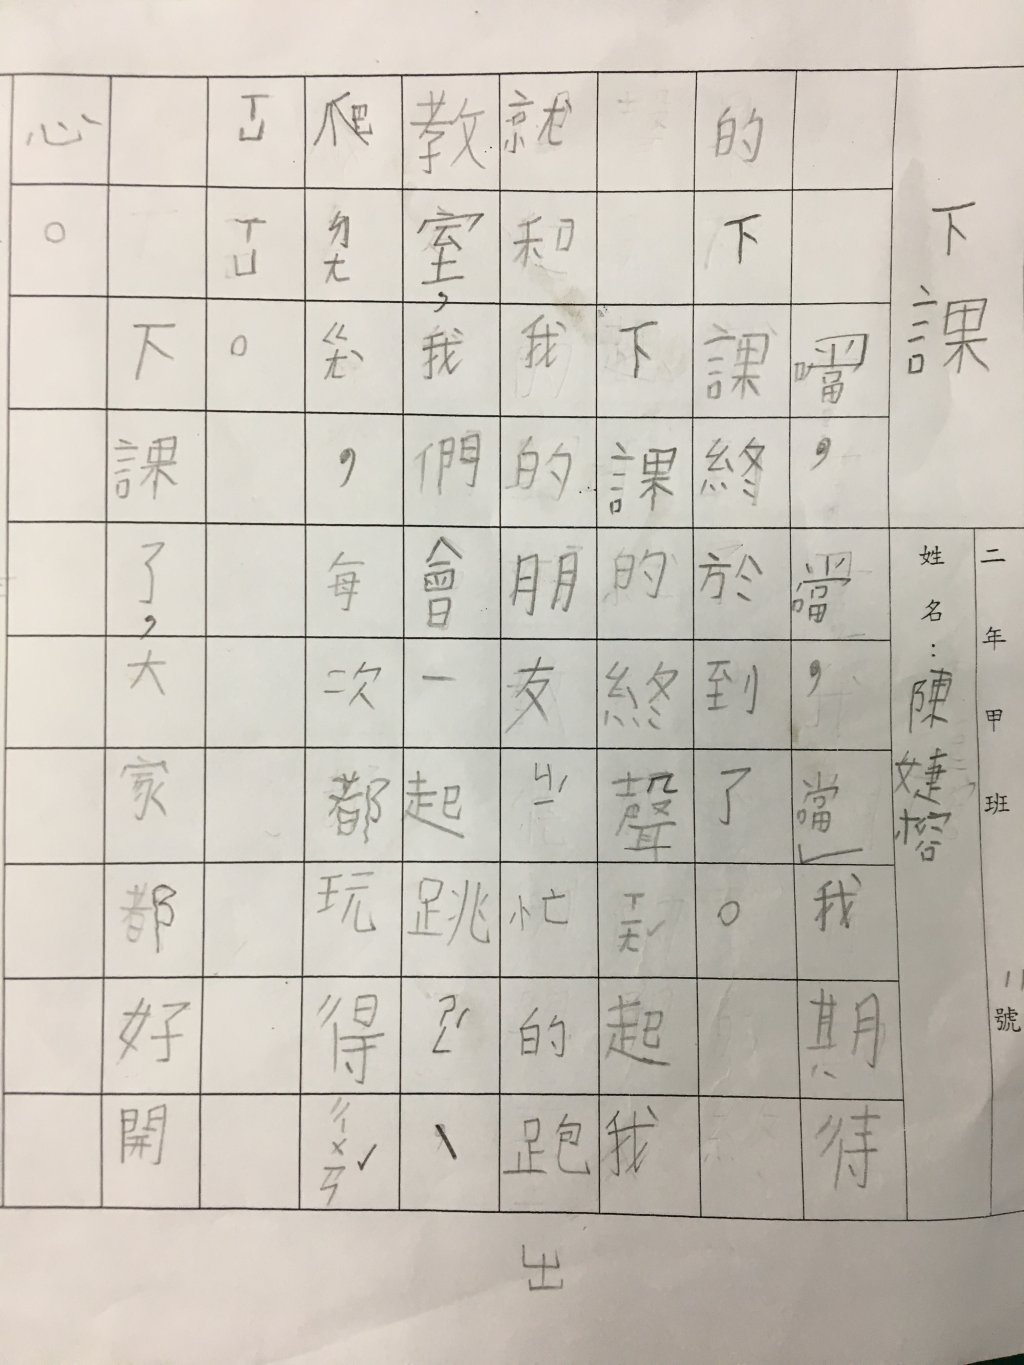 下課
二年甲班 11號
姓名：陳婕榕
噹，噹，噹」我期待
的下課終於到了。
下課的終聲ㄒㄧㄤˇ起我
就和我的朋友ㄐㄧˊ忙的跑出
教室，我們會一起跳ㄕㄥˊ、
爬ㄉㄤㄍㄤ，每次都玩得ㄔㄨㄢˇ
ㄒㄩㄒㄩ。
下課了，大家都好開
心。